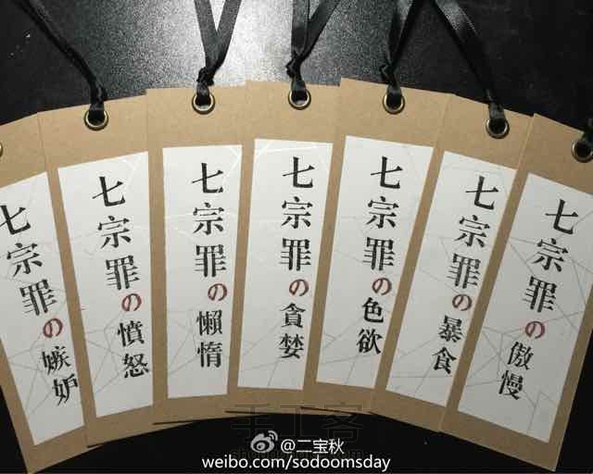 七宗罪の嫉妒
七宗罪の憤怒
七宗罪の懶惰
七宗罪の貪婪
七宗罪の色欲
七宗罪の暴食
七宗罪の傲慢
手工客
@二宝秋
weibo.com/sodoomsday